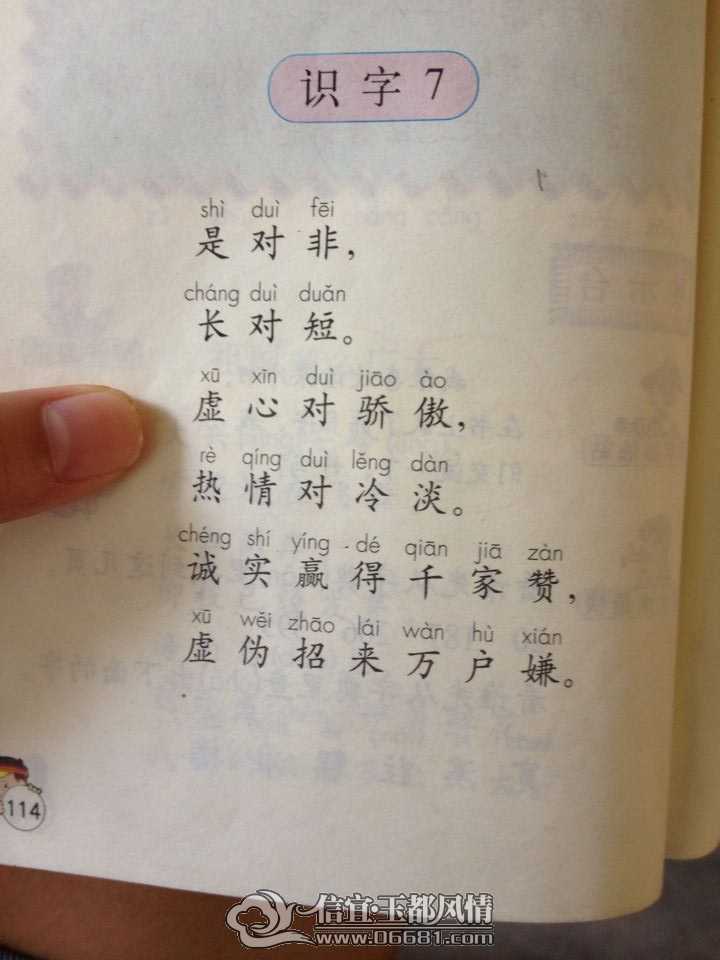 识字7
shì duì fēi
是对非，
cháng duì duǎn
长对短。
xū xīn duì jiāo ào
虚心对骄傲，
rè qíng duì lěng dàn
热情对冷淡。
chéng shí yíng dé qiān jiā zàn
诚实赢得千家赞，
xū wěi zhāo lái wàn hù xián
虚伪招来万户嫌。
114
信宜·玉都风情
www.06681.com